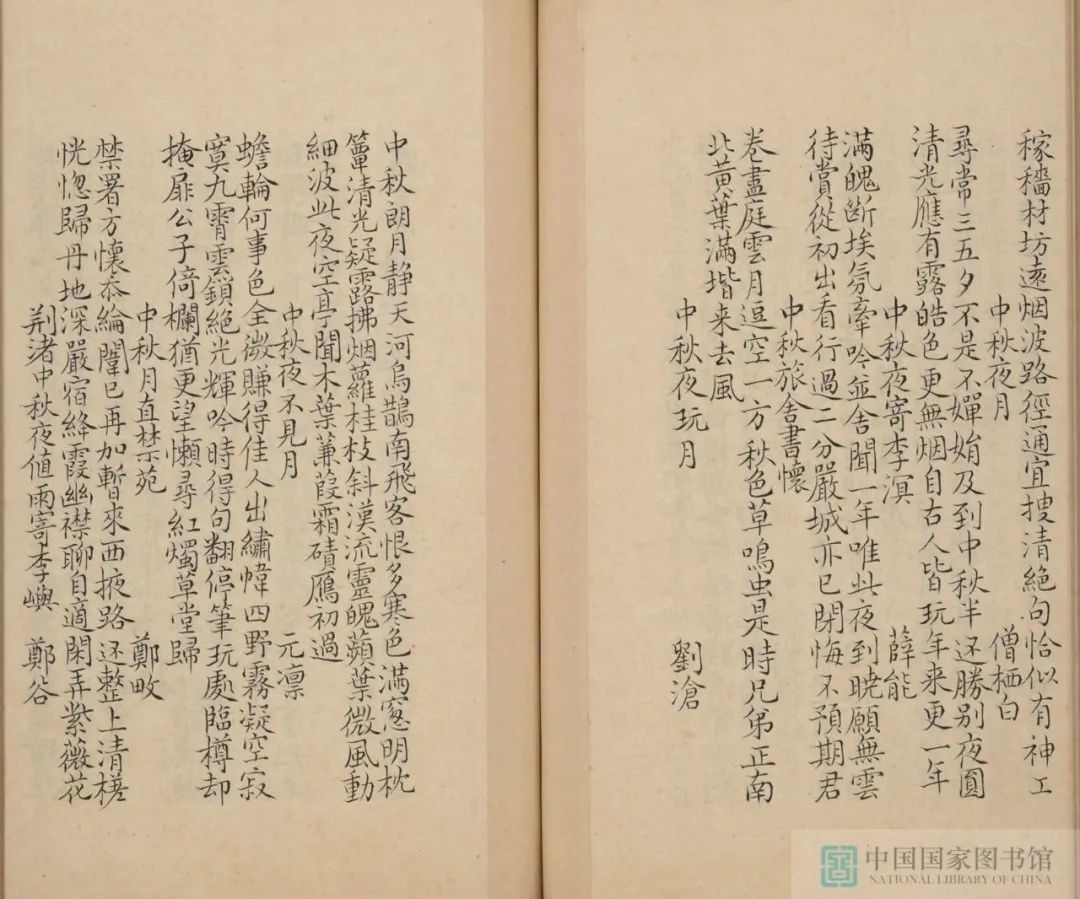 稼穡材坊遠烟波路徑通宜搜清絶句恰似有神工
中秋夜月 僧栖白
尋常三五夕不是不嬋娟及到中秋半还勝别夜圓
清光應有露皓色更無烟自古人皆玩年来更一年
中秋夜寄李溟 薛能
滿魄斷埃氛牽吟並舍聞一年唯此夜到曉願無雲
待賞從初出看行過二分嚴城亦已閉悔不預期君
中秋旅舍書懷
卷盡庭雲月逗空一方秋色草鳴虫是時兄弟正南
北黄葉滿堦来去風
中秋夜玩月 劉滄
中秋朗月静天河烏鵲南飛客恨多寒色滿窓明枕
簟清光凝露拂烟蘿桂枝斜漢流靈魄蘋葉微風動
細波此夜空亭聞木葉蒹葭霜磧鴈初過
中秋夜不見月 元凛
蟾輪何事色全微賺得佳人出繡幃四野霧凝空寂
寞九霄雲鎖絶光輝吟時得句翻停筆玩處臨樽却
掩扉公子倚欄猶更望懶尋紅燭草堂歸
中秋月直禁苑 鄭畋
禁署方懷忝綸闈已再加暫來西掖路还整上清槎
恍惚歸丹地深嚴宿絳霞幽襟聊自適閑弄紫薇花
荆渚中秋夜値雨寄李嶼 鄭谷
中国国家图书馆
NATIONAL LIBRARY OF CHINA